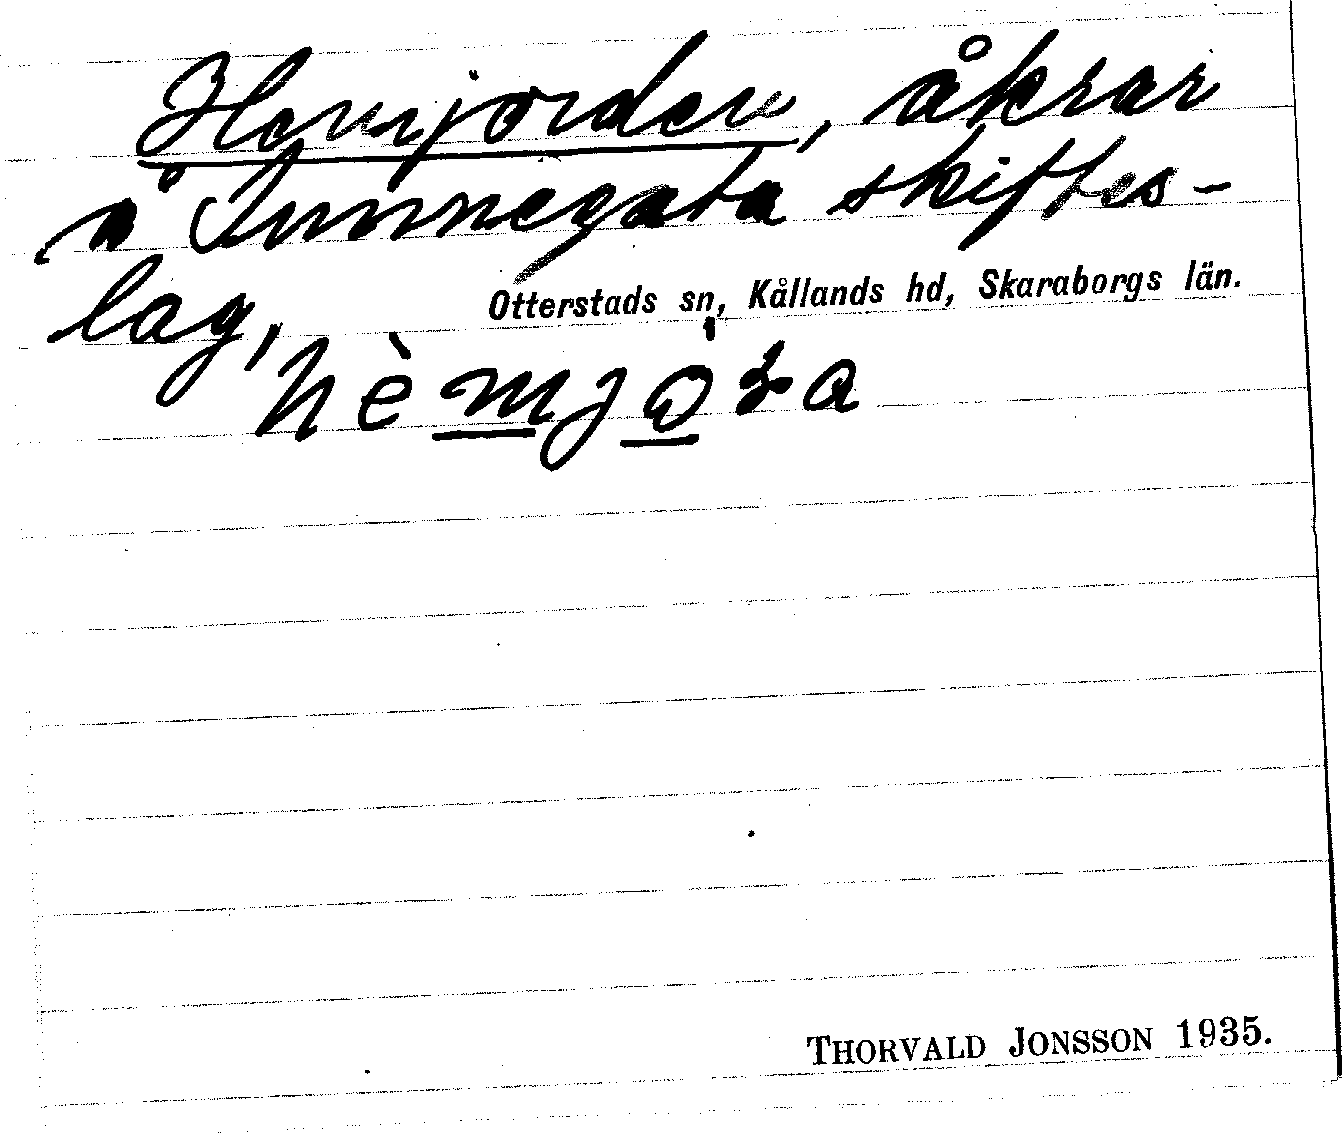 Hemjorden, åkrar
å Sunnegata skiftes-
lag,
Otterstads sn, Kållands hd, Skaraborgs län.
hèmjo̱ra
THORVALD JONSSON 1935.